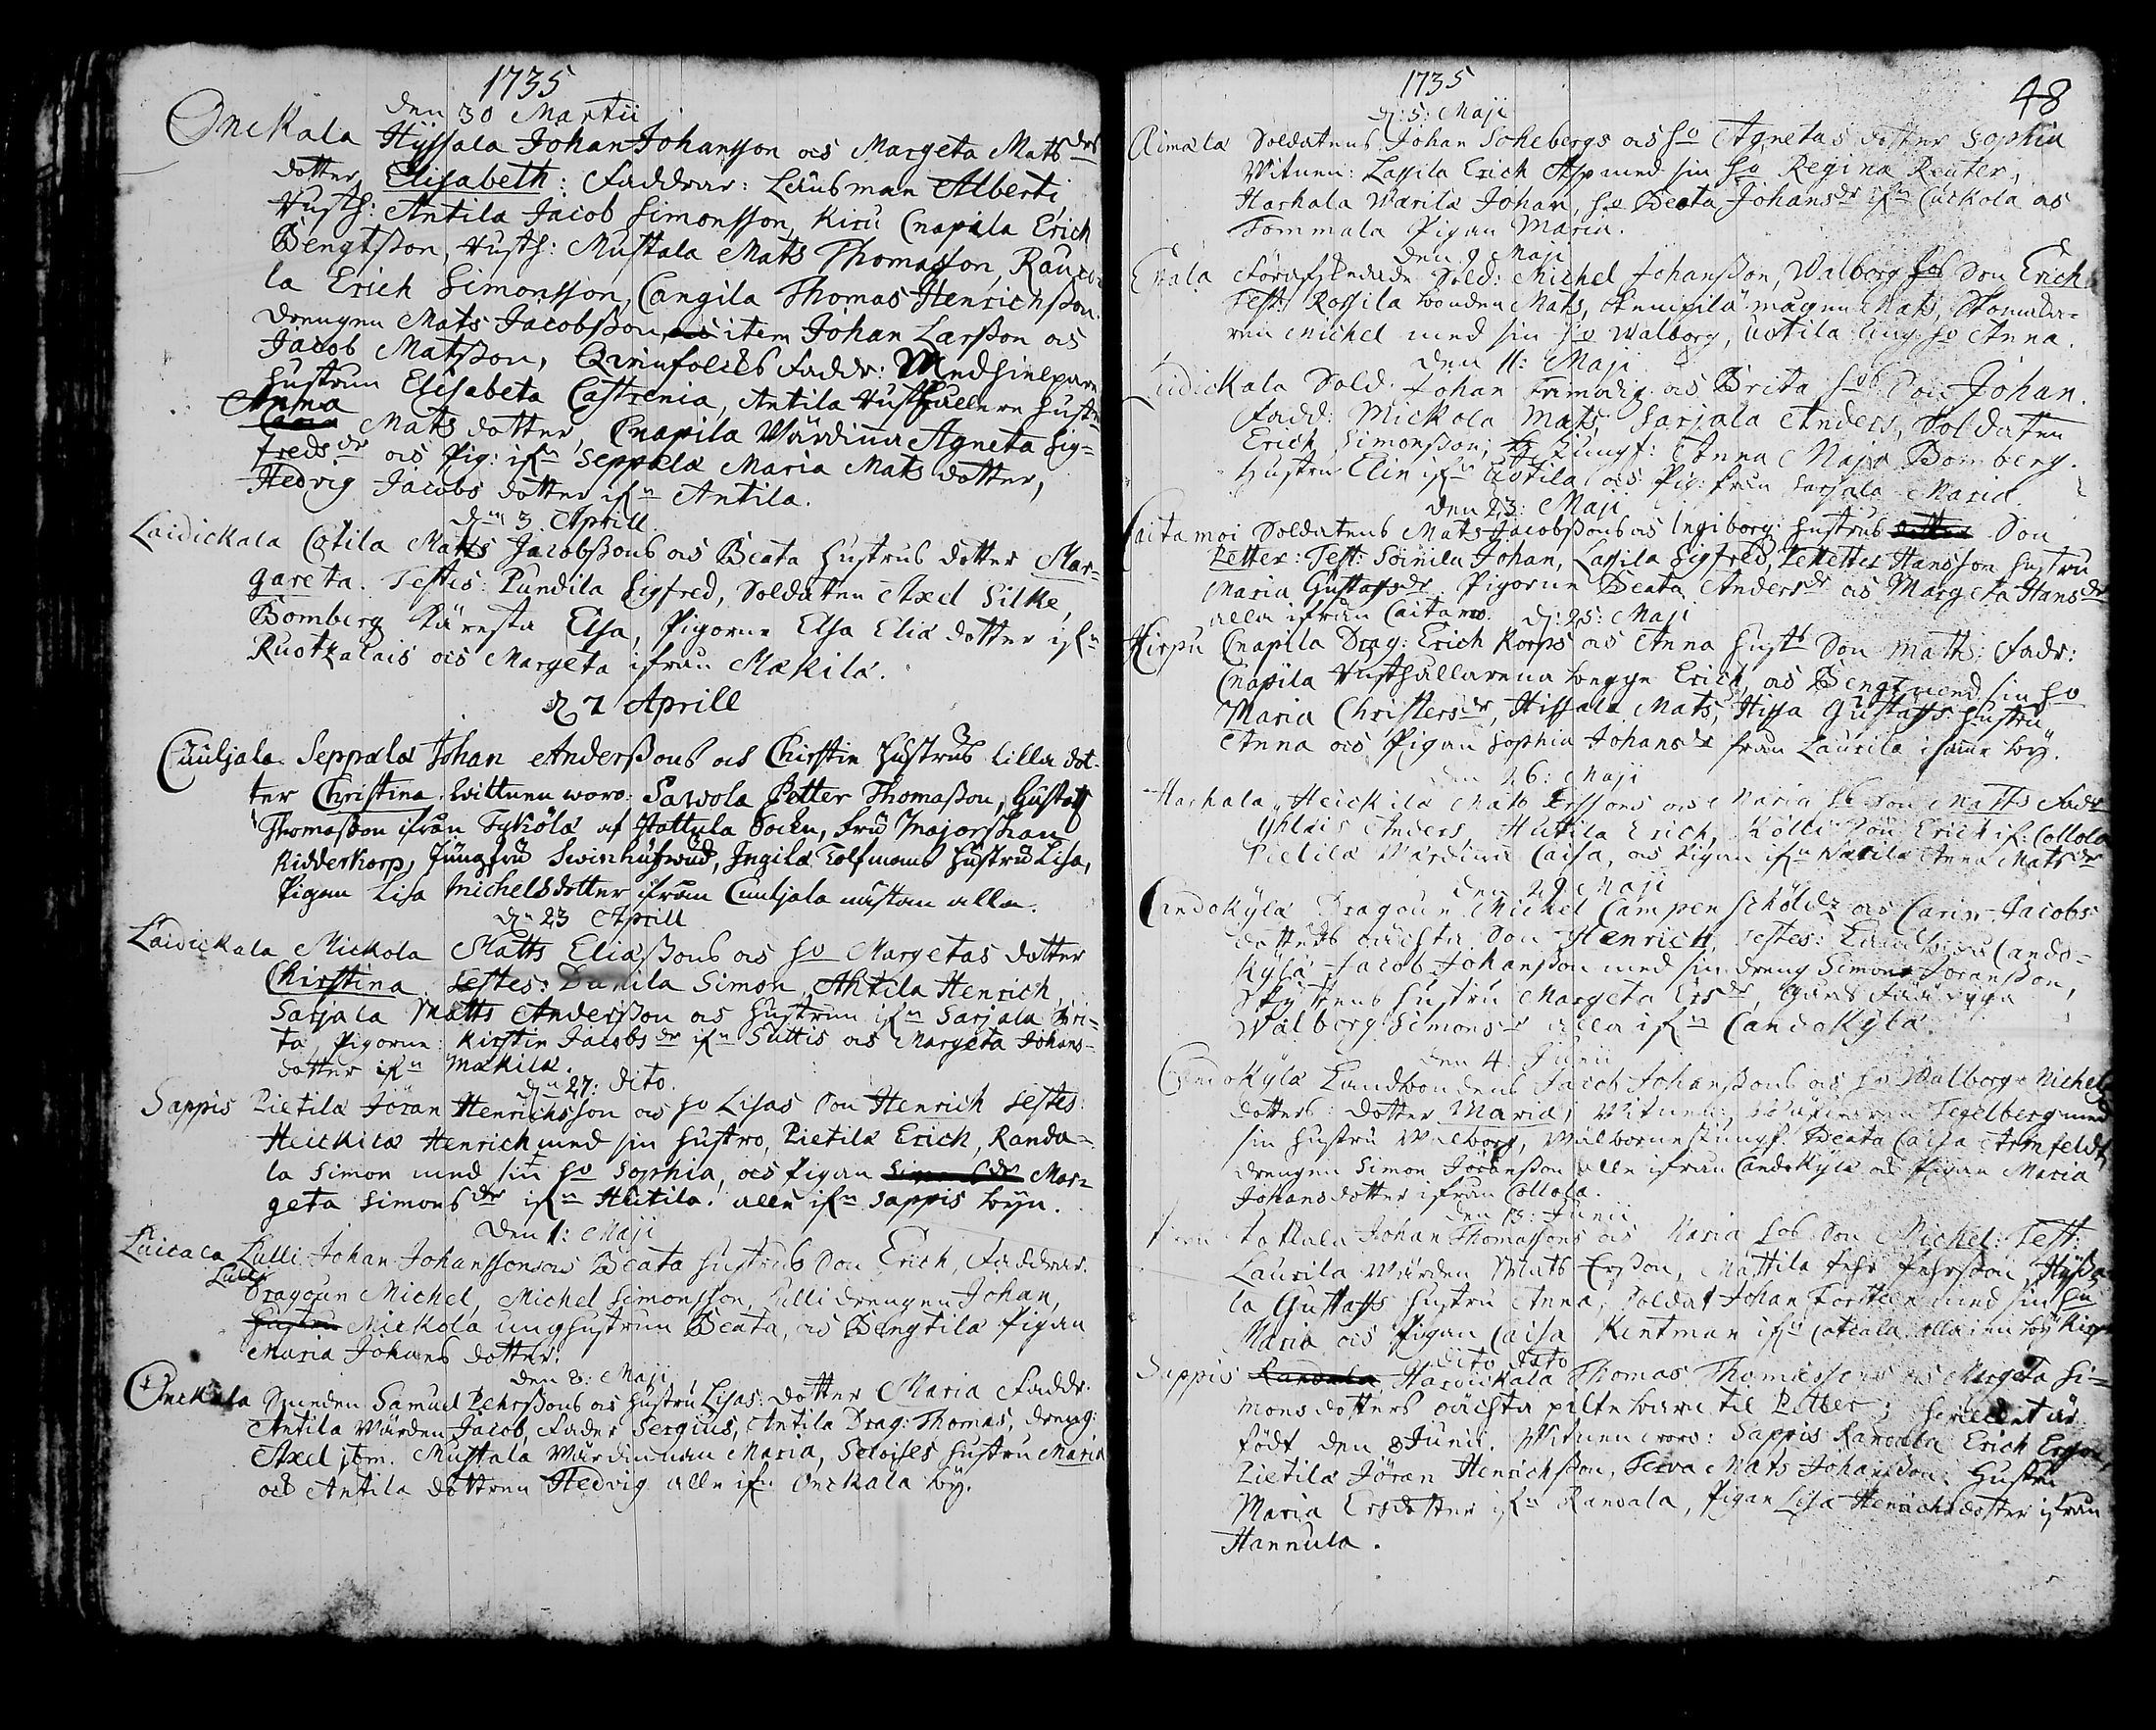 1735
den 30 Martii
Onckala Hyssala Johan Johansson os Margeta Mats drs
dotter Elisabeth: Faddrar: Länsman Alberti,
Rusth: Antila Jacob Simonsson, Kiru Cnapila Erich
Bengtsson, Rusth: Mustala Mats Thomasson, Rauco-
la Erich Simonsson, Cangila Thomas Henrichsson
drengen Mats Jacobsson item Johan Larsson os
Jacob Matsson, Qvinfolcks Faddr: Medhielparn
hustrun Elisabeta Castrenia, Antila Rusthållern hustr
Anna
Mats dotter, Cnapila Wärdinna Agneta Sig-
freds dr os Pig: ifn Seppälä Maria Mats dotter,
Hedvig Jacobs dotter ifn Antila.
dn 3. Aprill.
Laidickala Cotila Matts Jacobssons os Beata hustrus dotter Mar-
gareta. Testes: Pundila Sigfred, Soldaten Axel Silke,
Bomberg käresta Elsa, Pigorne Elsa Elia dotter ifn
Ruotzalais os Margeta ifrån Mäkilä.
d 7 Aprill
Cuuljala Seppälä Johan Anderssons os Chirstin hustrus lilla dot-
ter Christina. Wittnen woro: Sawola Petter Thomasson, Gustaff
Thomasson ifrån Sykölä af Hattula Sockn, fru Majorskan
Ridderkorp, Jungfru Swinhufwud, Ingilä Tolfmans hustru Lisa,
Pigan Lisa Michelsdotter ifrån Cuuljala nästan alla.
dn 23 Aprill
Laidickala Mickola Matts Eliassons os ho Margetas dotter
Chirstina. Testes: Danila Simon, Ahtila Henrich,
Sarjala Matts Andersson os hustrun ifn Sarjala Bri-
ta, Pigorne: Kirstin Jacobs dr ifn Suttis os Margeta Johans-
dotter ifn Mäkilä.
dn 27: dito.
Sappis Pietilä Jöran Henrichsson os ho Lisas Son Henrich Testes:
Heickilä Henrich med sin hustro, Pietilä Erich, Randa-
la Simon med sin ho Sophia, os Pigan Mar-
geta Simons dr ifn Hutila. alle ifn Sappis byn.
Den 1: Maji
Lulli Johan Johansson os Beata hustrus Son Erich, Faddrar.
Lulli
Dragoun Michel, Michel Simonsson, Lulli drengen Johan,
Mickola unghustrun Beata, os Bengtilä Pigan
Maria Johans dotter.
den 8: Maji
Onckala Smeden Samuel Pehrssons os hustru Lisas: dotter Maria Faddr.
Antila Wärden Jacob, Fader Sergius, Antila Drag: Thomas, dreng:
Axel, itm. Mustala Wärdinnan Maria, hustru Maria
och Antila dottren Hedvig alle if: Onckala by.

1735
48
d: 5: Maji
Rimälä Soldatens Johan Sohebergs os ho Agnetas dotter Sophia
Witnen: Lassila Erich Asp med sin ho Regina Reuter,
Harhala Warilä Johan, ho Beata Johans dr ifn Cuckola os
Tommala Pigan Maria.
den 9 Maji
Michel Johansson, Walborg hos Son Erich
Test: Rossila bonden Mats, mågen Mats,
Michel med sin ho Walborg, ung ho Anna.
den 11: Maji
Laidickala Sold: Johan os Brita hos Son Johan.
Fadd: Mickola Mats, Sarjala Anders, Soldaten
Erich Simonsson, Jungf: Anna Maja Bomberg.
Hustru Elin ifn Cotila os Pig: från Sarjala Maria.
den 23: Maji
Caitamoi Soldatens Mats Jacobssons os Ingiborg: hustrus dotter Son
Petter: Test: Soinila Johan, Lassila Sigfred, Hansson hustru
Maria Gustafs dr. Pigorne Beata Anders dr os Margeta Hans dr
alla ifrån Caitamo. d: 25: Maji
Hirpu Cnapila Drag: Erich Korps os Anna hustrs Son Matts: Fadr:
Cnapila Rusthållarena begge Erich, os Bengt med sin ho
Maria Christers dr, Hissala Mats, Hissa Gustafs hustru
Anna os Pigan Sophia Johans dr från Laurila i samme by.
den 26: Maji
Harhala, Heickilä Mats Erssons os Maria Son Matts Fadr
Yhläis Anders, Hutila Erich, Kölli Son Erich if: Collola
Pietilä Wärdinn Caisa, os Pigan ifn Warilä Anna Mats dr
den 29 Maji
Candokylä Dragoun Michel Campenschöldz os Carin Jacobs
dotters oächta Son Henrich, Testes: Cando-
kylä Jacob Johansson med sin dreng Simon Joransson,
hustru Margeta Ers dr,
Walborg Simons dr alla ifn Candokylä.
den 4 Junii
Candokylä Landbondens Jacob Johanssons os ho Walborg Michels
dotters dotter Maria, Witnen: Tegelberg med
sin hustru Walborg, Wälborne Jungf. Beata Caisa Armfeldt,
drengen Simon Joransson alle ifrån Candokylä os Pigan Maria
Johansdotter ifrån Collola.
den 13: Junii
Johan Thomassons os Maria hos Son Michel: Test:
Laurila Wärden Mats Ersson, Mattila Pehr Pehrsson, Hyssa-
la Gustaffs hustru Anna, Soldat Johan med sin hu
Maria os Pigan Caisa Kentman ifn alla i en by Hirpu
dito dato
Sappis Randala Harvickala Thomas Thomessons os Margeta Si-
mons dotters oächta piltebarn til Petter; hvilcket är
födt den 8 Junii. Witnen woro: Sappis Randala Erich Ersson,
Pietilä Jöran Henrichsson, Terva Mats Johansson. Hustru
Maria Ersdotter ifn Randala, Pigan Lisa Henrichsdotter ifrån
Hannula.